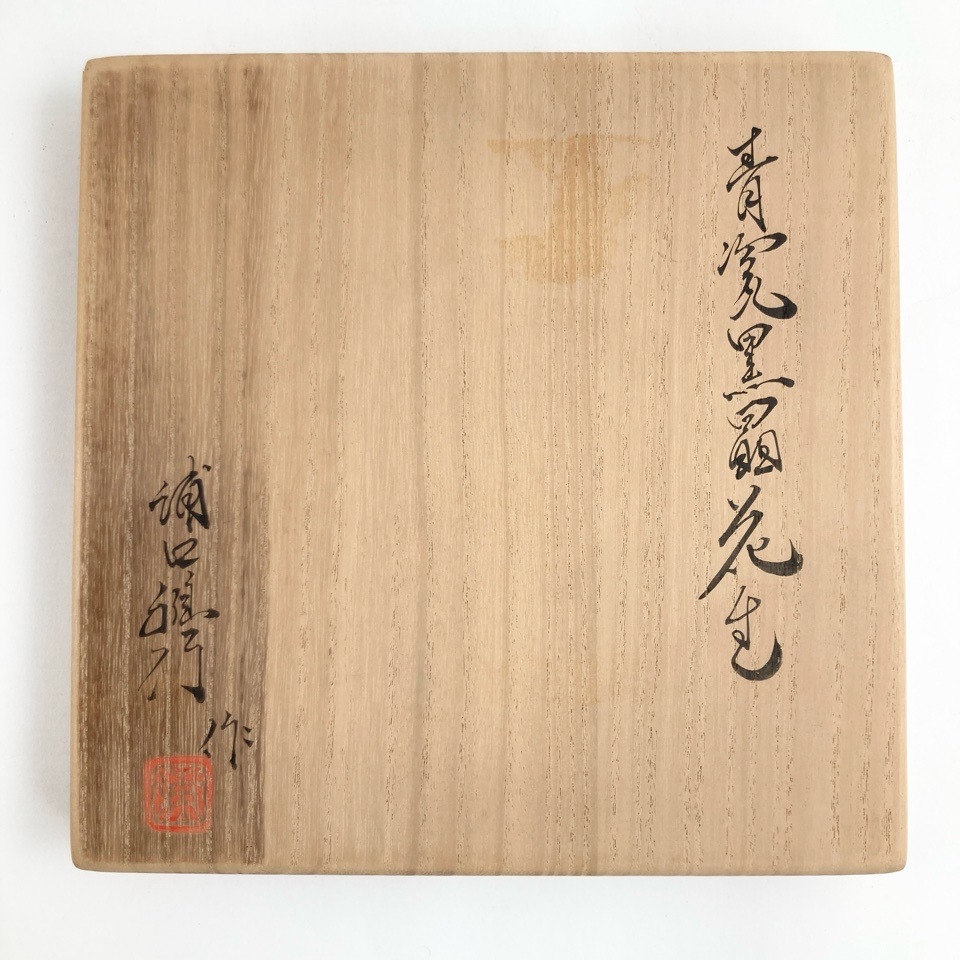 青瓷黒晶花生
浦口雅行
作